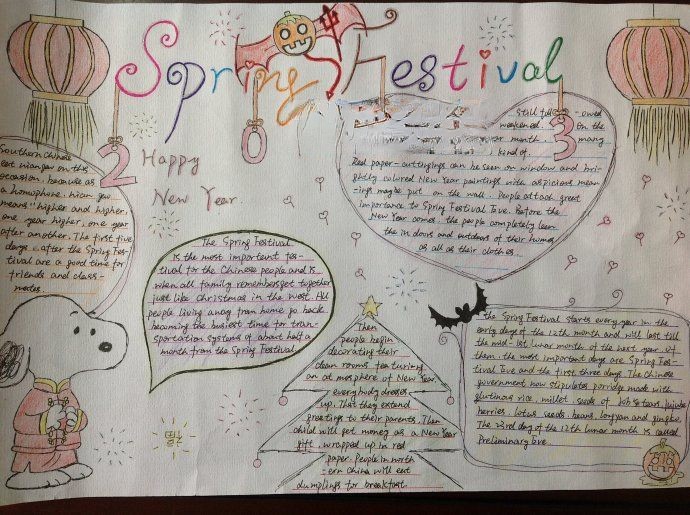 Spring Festival
2 0 1 3
Happy
New Year
Southern Chinese
eat niangao on this
occasion, because as
a homophone, niangao
means "higher and higher,
one year higher, one year
after another. The first five
days after the Spring Fes-
tival are a good time for
friends and class-
mates
The Spring Festival
is the most important fes-
tival for the Chinese people and is
when all family members get together
just like Christmas in the west. All
people living away from home go back
becoming the busiest time for tran-
sportation systems of about half a
month from the Spring Festival
Then
people begin
decorating their
clean rooms featuring
an atmosphere of New Year
everybody dresses
up. That they extend
greetings to their parents. Then
child will get money as a New Year
gift, wrapped up in red
paper. People in north
-ern China will eat
dumplings for breakfast
still
weakened. on the
or month many
kind of.
Red paper-cuttings can be seen on window and bri-
ghtly colored New Year paintings with aspicious mean
-ings maybe put on the wall. People attach great
importance to Spring Festival Eve. Before the
New Year comes the people completely
the indoors and outdoors of their homes
as all as their clothes.
the Spring Festival starts every year in the
early days of the 12th month and will last till
the mid-1st lunar month of the next year of
them. the most important days are Spring Fes-
tival Eve and the first three days. The Chinese
government now stipulates porridge made with
glutinous rice, millet seeds of Job's tears, jujube
berries, lotus seeds, beans, longan and gingko.
The 23rd day of the 12th lunar month is called
Preliminary Eve